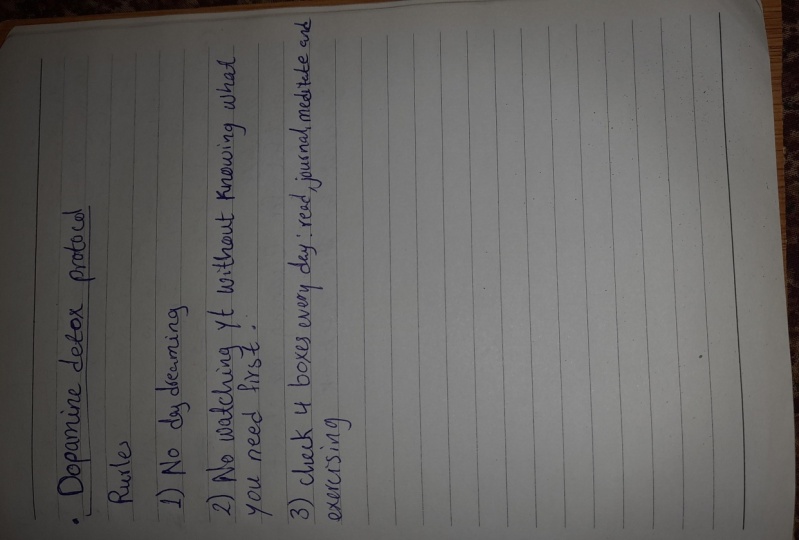 • Dopamine detox protocol
Rurles
1) No day dreaming
2) No watching yt without knowing what
you need first.
3) check 4 boxes every day: read, journal, meditate and
exercising